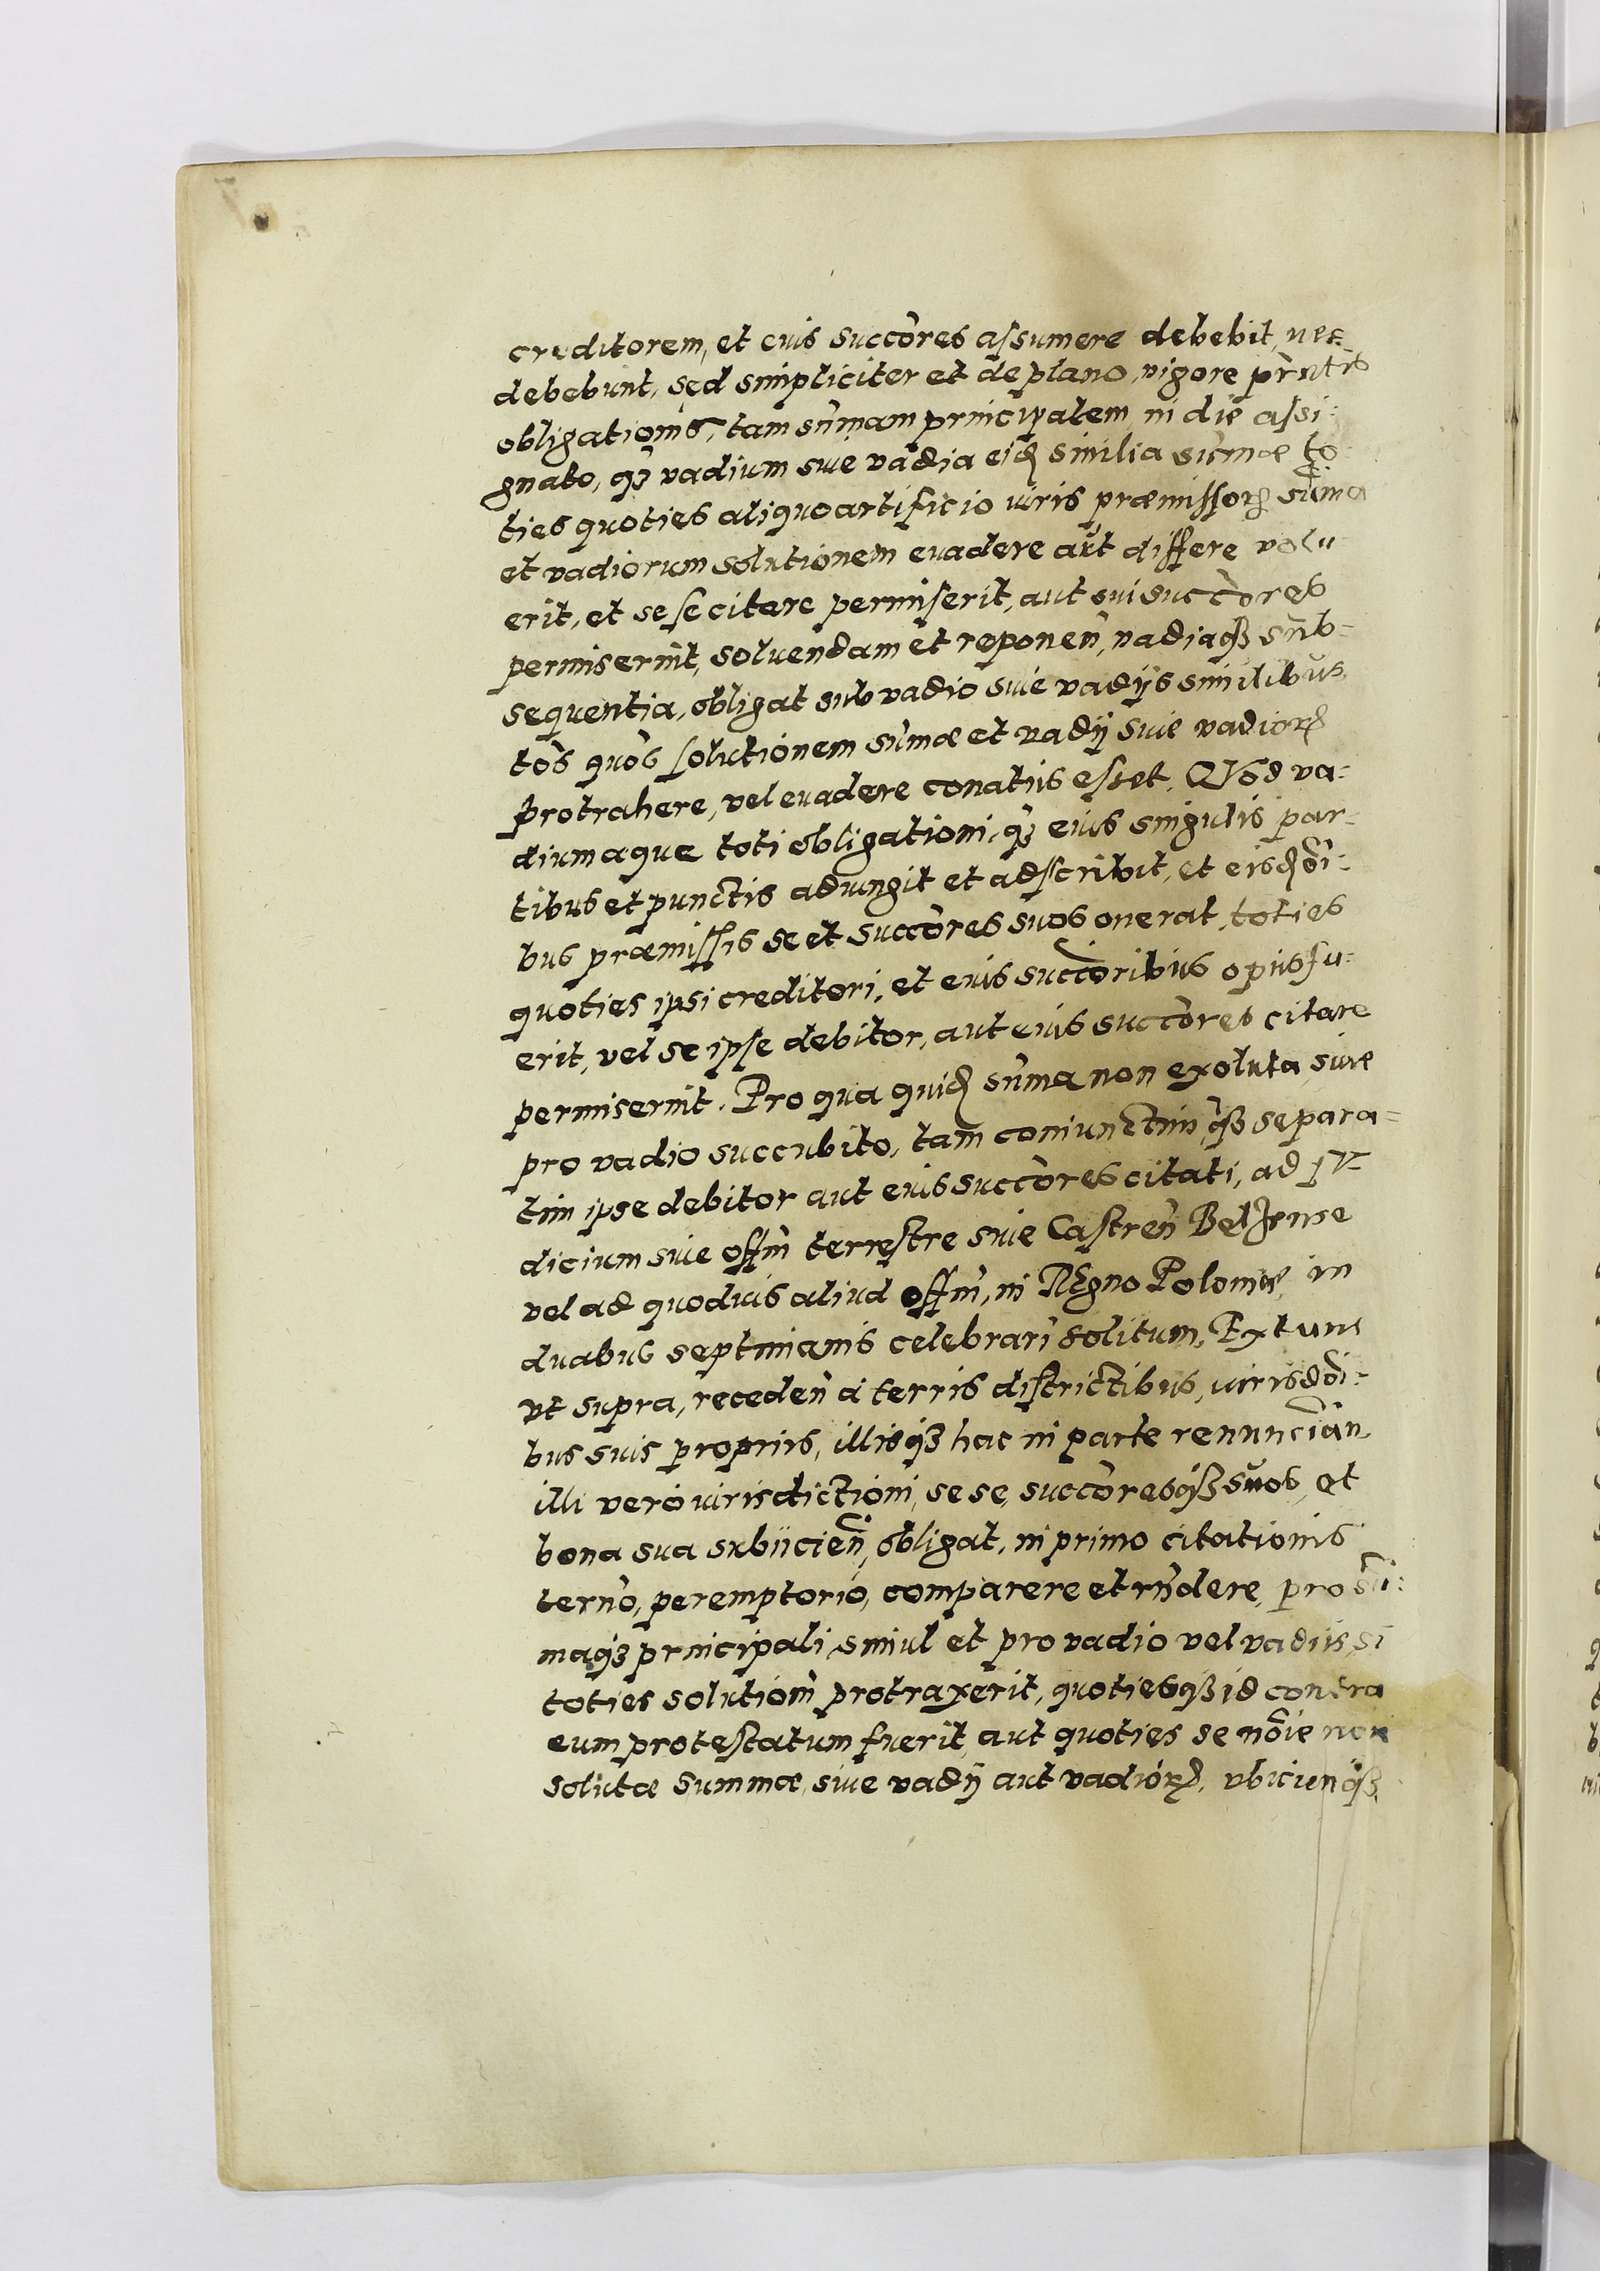 creditorem, et eius succores assumere debebit, nec
debebunt, sed simpliciter et de plano, vigore prntis
obligationis, tam sum̄am principalem in die assi:
gnato, qʒ vadium siue vadia eid similia sum̄æ to:
ties quoties aliquo artificio iuris præmissorꝝ sūma
et vadiorum solutionem euadere aut differe volu:
erit, et se se citare permiserit, aut sui succores
permiserint, soluendam et reponen̄, vadiaqʒ sub:
sequentia, obligat sub vadio siue vadijs similibus,
tōs quōs solutionem sum̄æ et vadij siue vadiorꝝ
protrahere, vel euadere conatus esset. Quod va:
dium aque toti obligationi, qʒ eius singulis par:
tibus et punctis adiungit et adscribit, et eisd ōi:
bus præmissis se et succores suos onerat, toties
quoties ipsi creditori, et eius succoribus opus fu:
erit, vel se ipse debitor, aut eius succores citare
permiserint. Pro qua quid sum̄a non exoluta, siue
pro vadio succubito, tam coniunctim, qʒ separa=
tim ipse debitor aut eius succores citati, ad iu=
dicium siue offm̄ terrestre siue Castren̄ Belzense
vel ad quoduis aliud offm̄, in Regno Poloniæ, in
duabus septimanis celebrari solitum, Ex tunc
vt supra, receden̄ a terris districtibus, iurisdōi:
bus suis proprijs, illisqʒ hac in parte renuncian̄
illi vero iurisdictioni, se se, succoresqʒ suos, et
bona sua subijcien̄, obligat, in primo citationis
tern̄o, peremptorio, comparere et rn̄dere, pro sū:
maqʒ principali simul et pro vadio vel vadijs, si
toties solutiom̄ protraxerit, quotiesqʒ id contra
eum protestatum fuerit, aut quoties se nōie non
solutæ summæ, siue vadij aut vadiorꝝ, vbicunqʒ